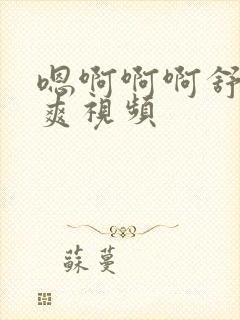 嗯啊啊啊舒
爽視頻
蘇蔓